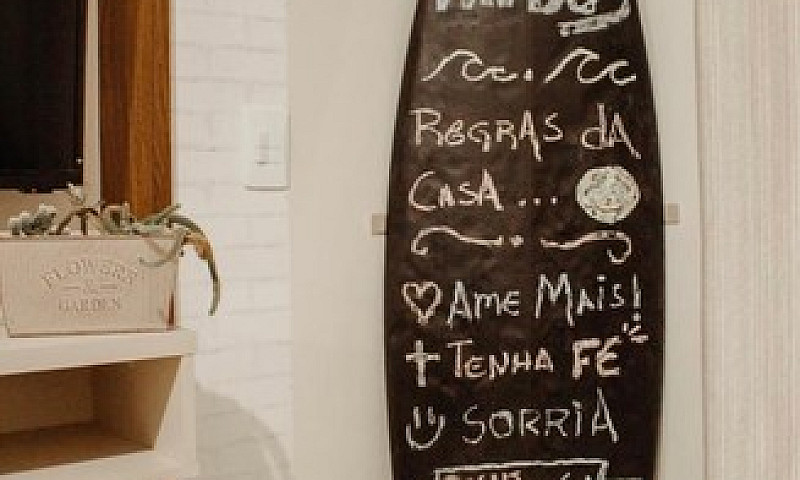 REGRAS DA
CASA ...
AME MAIS!
TENHA FÉ
SORRIA
FLOWERS
&
GARDEN